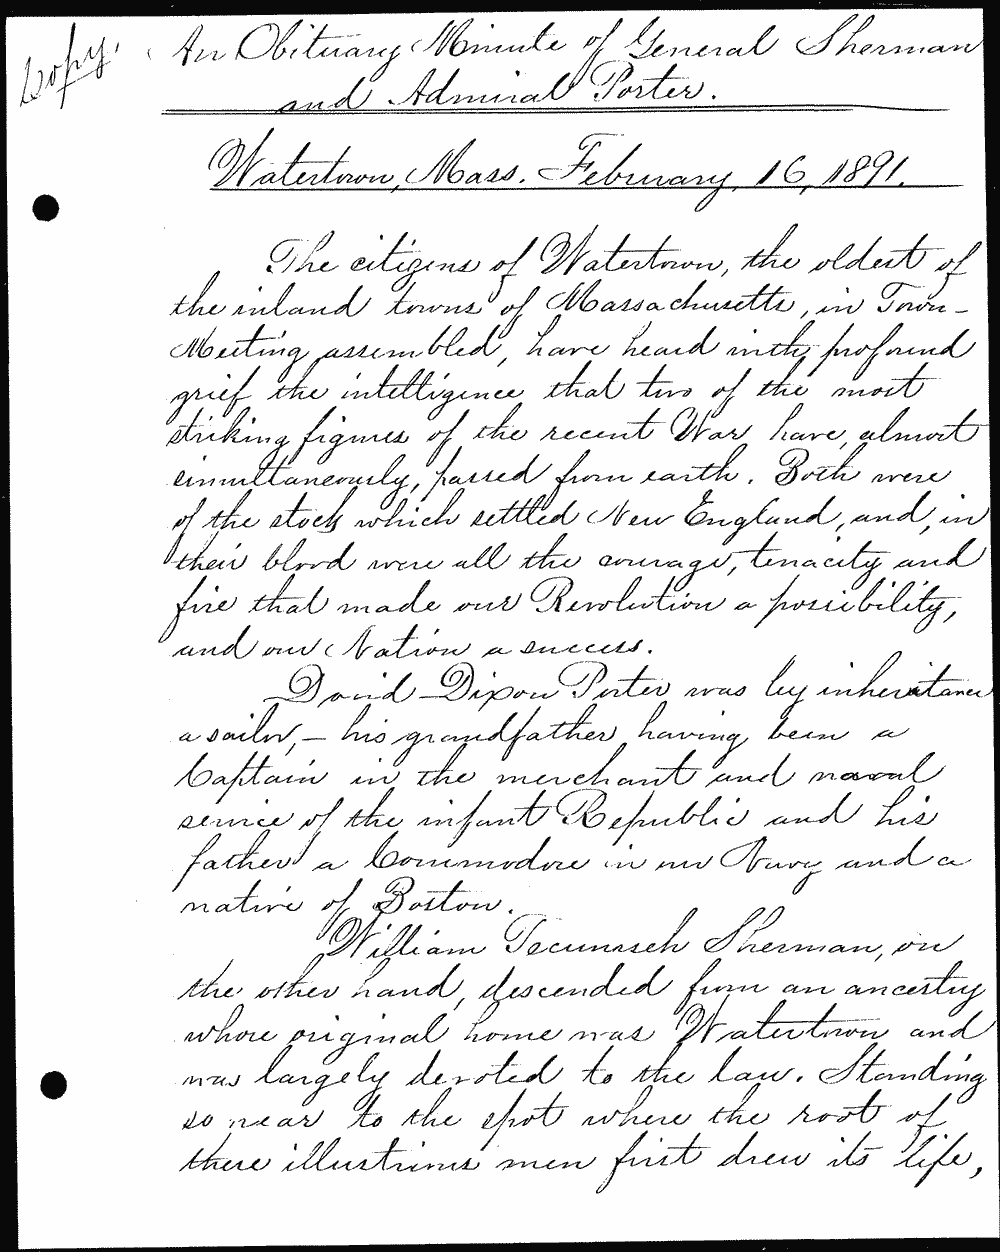 Copy.
An Obituary Minute of General Sherman
and Admiral Porter.
Watertown, Mass. February, 16, 1891.
The citizens of Watertown, the oldest of
the inland towns of Massachusetts, in Town-
Meeting assembled, have heard with profound
grief the intelligence that two of the most
striking figures of the recent War have, almost
simultaneously, passed from earth. Both were
of the stock which settled New England, and, in
their blood were all the courage, tenacity and
fire that made our Revolution a possibility,
and our Nation a success.
David Dixon Porter was by inheritance
a sailor, - his grandfather having been a
Captain in the merchant and naval
service of the infant Republic and his
father a Commodore in our Navy and a
native of Boston.
William Tecumseh Sherman, on
the other hand, descended from an ancestry
whose original home was Watertown and
was largely devoted to the law. Standing
so near to the spot where the root of
these illustrious men first drew its life,